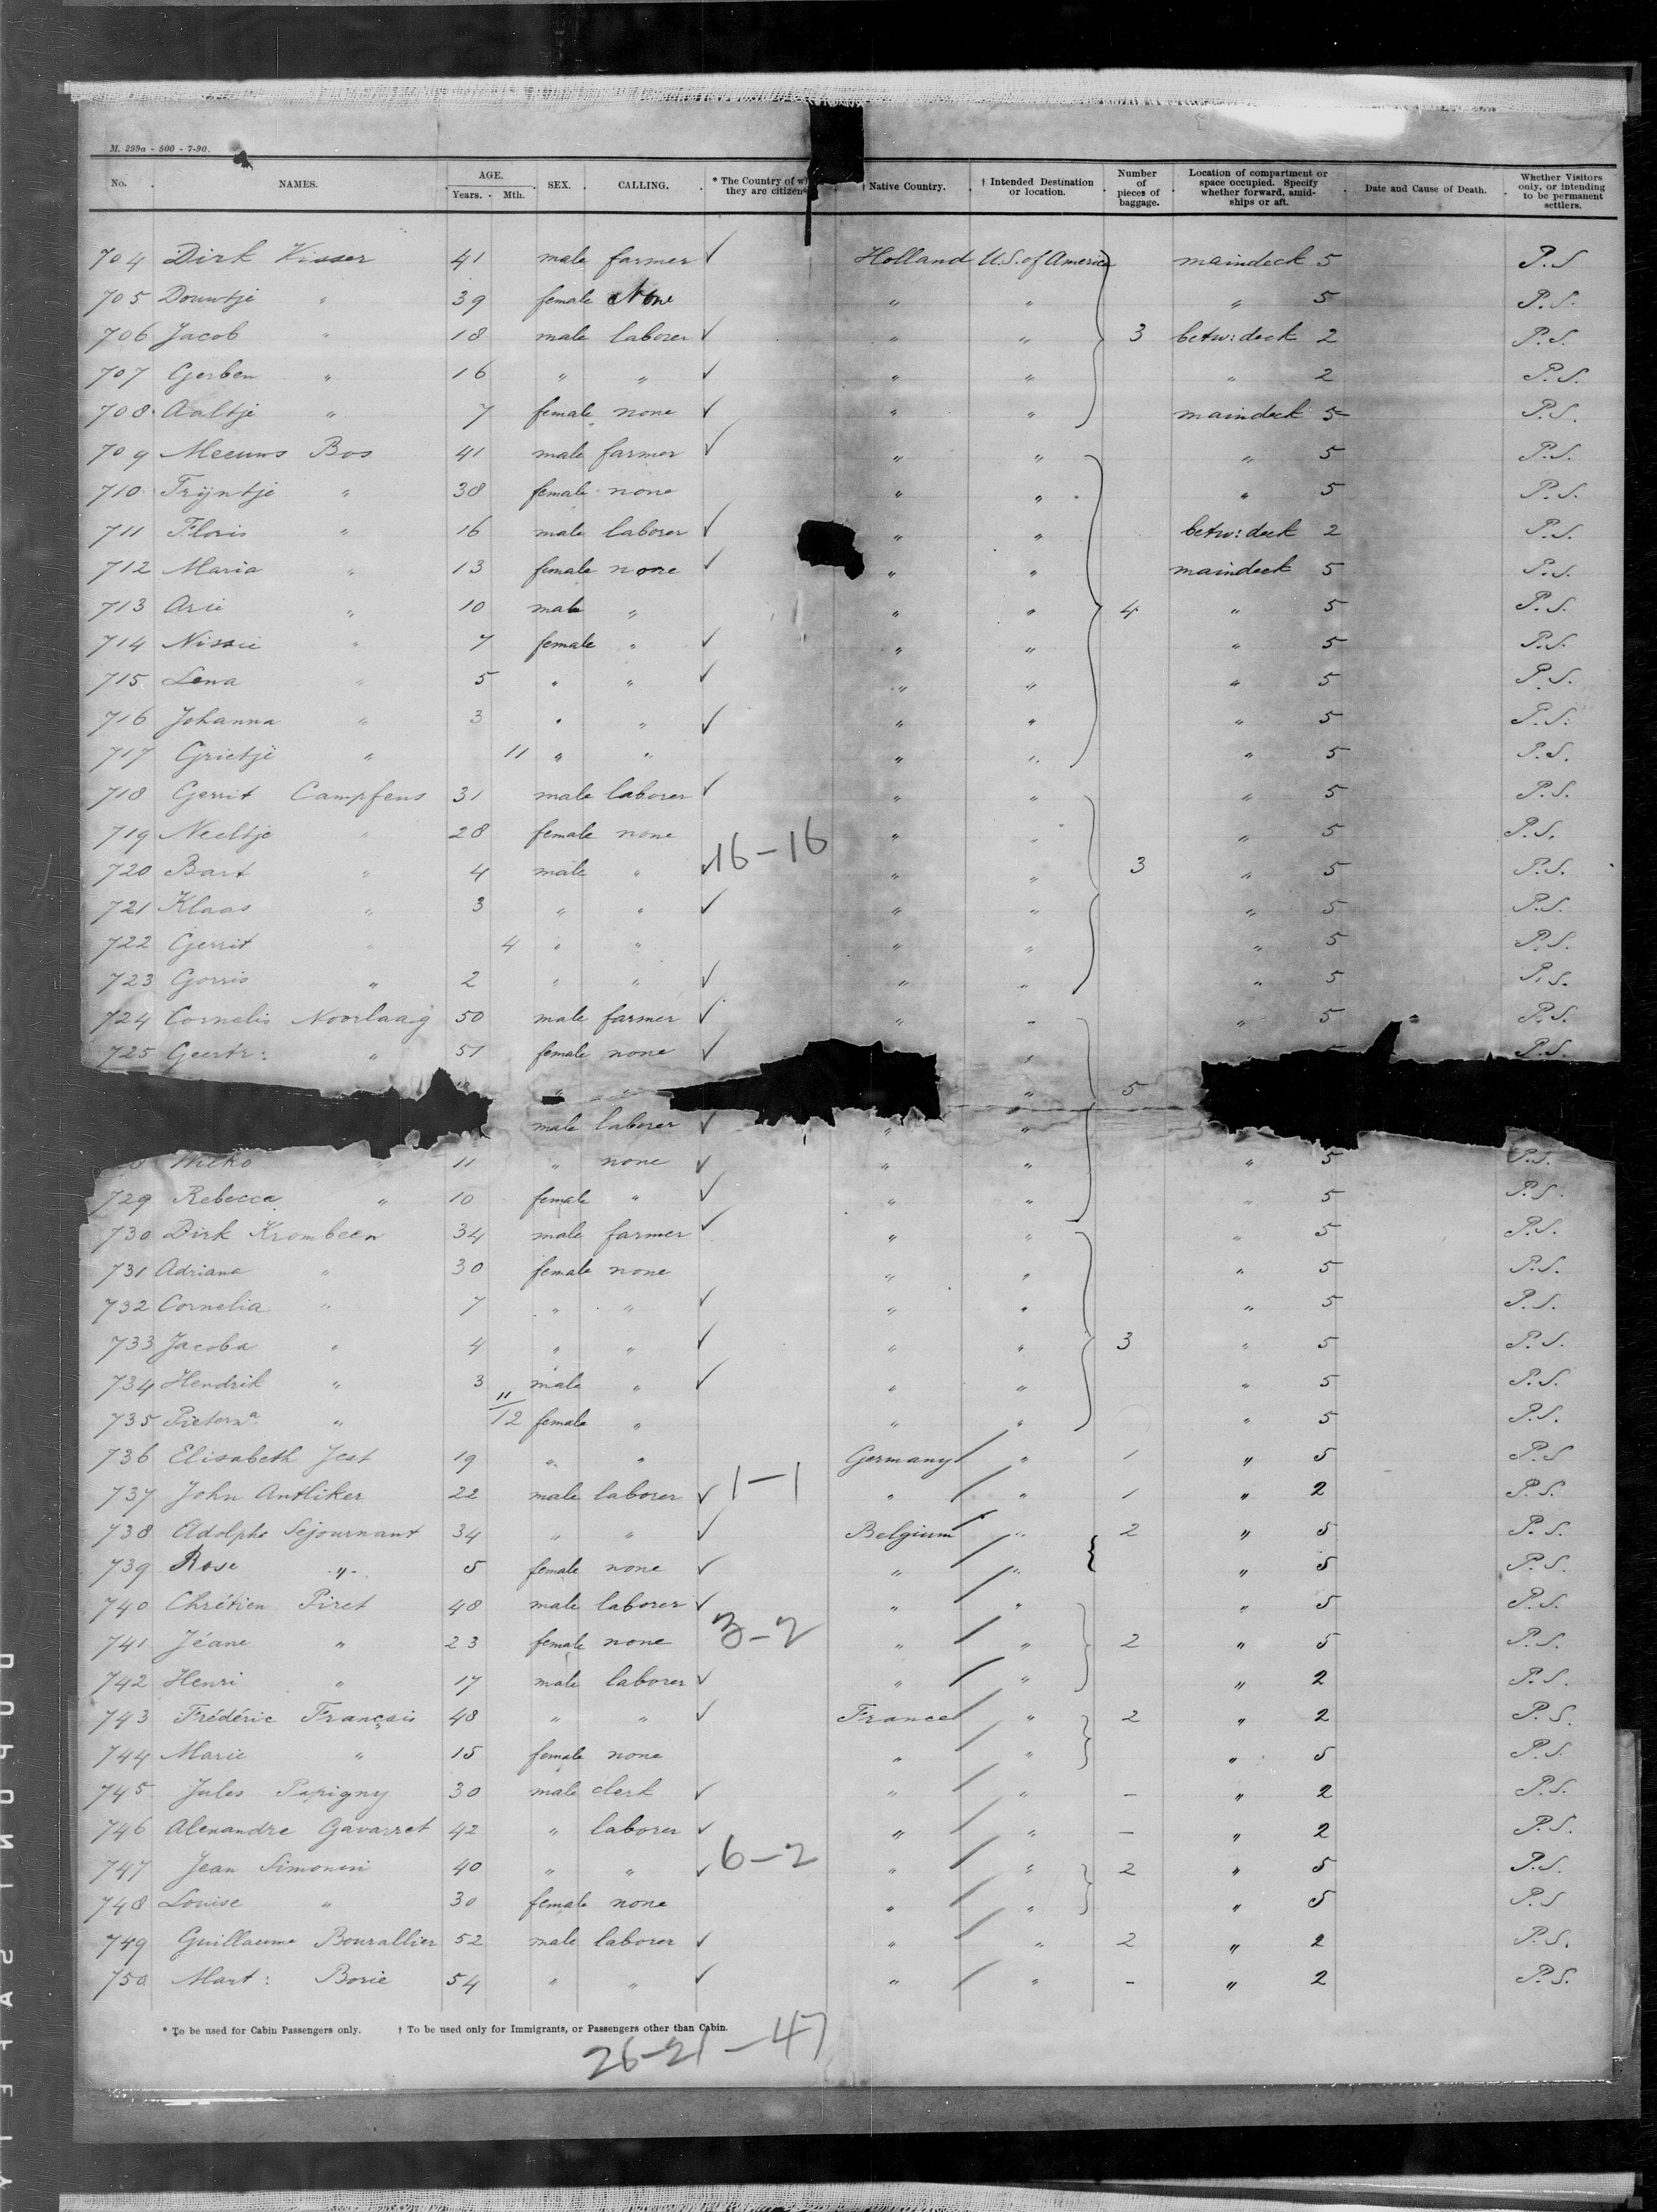 M. 289a - 500 - 7-90.
No. NAMES. AGE. Years. Mth. SEX. CALLING. * The Country of they are citizen † Native Country. † Intended Destination or location. Number of pieces of baggage. Location of compartment or space occupied. Specify whether forward, amidships or aft. Date and Cause of Death. Whether Visitors only, or intending to be permanent settlers.
704 Dirk Visser 41 male farmer ✓ Holland U.S. of America maindeck 5 P.S
705 Douwtje " 39 female None " " " 5 P.S.
706 Jacob " 18 male laborer ✓ " " 3 betw: deck 2 P.S.
707 Gerben " 16 " " ✓ " " " 2 P.S.
708 Aaltje " 7 female none ✓ " " maindeck 5 P.S.
709 Meeuws Bos 41 male farmer ✓ " " " 5 P.S.
710 Trijntje " 38 female none " " " 5 P.S.
711 Floris " 16 male laborer ✓ " " betw: deck 2 P.S.
712 Maria " 13 female none ✓ " " maindeck 5 P.S.
713 Arie " 10 male " " " 4 " 5 P.S.
714 " 7 female " ✓ " " " 5 P.S.
715 Lena " 5 " " ✓ " " " 5 P.S.
716 Johanna " 3 " " ✓ " " " 5 P.S.
717 Grietje " 11 " " " " " 5 P.S.
718 Gerrit Campfens 31 male laborer ✓ " " " 5 P.S.
719 Neeltje " 28 female none " " " 5 P.S.
720 Bart " 4 male " ✓ 16-16 " " 3 " 5 P.S.
721 Klaas " 3 " " ✓ " " " 5 P.S.
722 Gerrit " 4 " " " " " 5 P.S.
723 Gorris " 2 " " ✓ " " " 5 P.S.
724 Cornelis Noorlaag 50 male farmer ✓ " " " 5 P.S.
725 Geertr: " 51 female none ✓ " P.S.
" " " 5
male laborer ✓ " "
" 11 " none ✓ " " " 5 P.S.
729 Rebecca " 10 female " ✓ " " " 5 P.S.
730 Dirk Krombeen 34 male farmer ✓ " " " 5 P.S.
731 Adriana " 30 female none " " " 5 P.S.
732 Cornelia " 7 " " ✓ " " " 5 P.S.
733 Jacoba " 4 " " ✓ " " 3 " 5 P.S.
734 Hendrik " 3 male " ✓ " " " 5 P.S.
735 Pietern.ª " 11/12 female " " " " 5 P.S.
736 Elisabeth Jest 19 " " Germany " 1 " 5 P.S
737 John Antliker 22 male laborer ✓ 1-1 " " 1 " 2 P.S.
738 Adolphe Sejournant 34 " " ✓ Belgium " 2 " 5 P.S.
739 Rose " 5 female none ✓ " " " 5 P.S.
740 Chrétien Piret 48 male laborer ✓ " " " 5 P.S.
741 Jéane " 23 female none 3-2 " " 2 " 5 P.S.
742 Henri " 17 male laborer ✓ " " " 2 P.S.
743 Frédéric Français 48 " " ✓ France " 2 " 2 P.S.
744 Marie " 15 female none " " " 5 P.S.
745 Jules Papigny 30 male clerk ✓ " " - " 2 P.S.
746 Alexandre Gavarret 42 " laborer ✓ " " - " 2 P.S.
747 Jean Simonin 40 " " ✓ 6-2 " " 2 " 5 P.S.
748 Louise " 30 female none " " " 5 P.S
749 Guillaume Bourallier 52 male laborer ✓ " " 2 " 2 P.S.
750 Mart: Borie 54 " " ✓ " " - " 2 P.S.
* To be used for Cabin Passengers only. † To be used only for Immigrants, or Passengers other than Cabin.
26-21-47